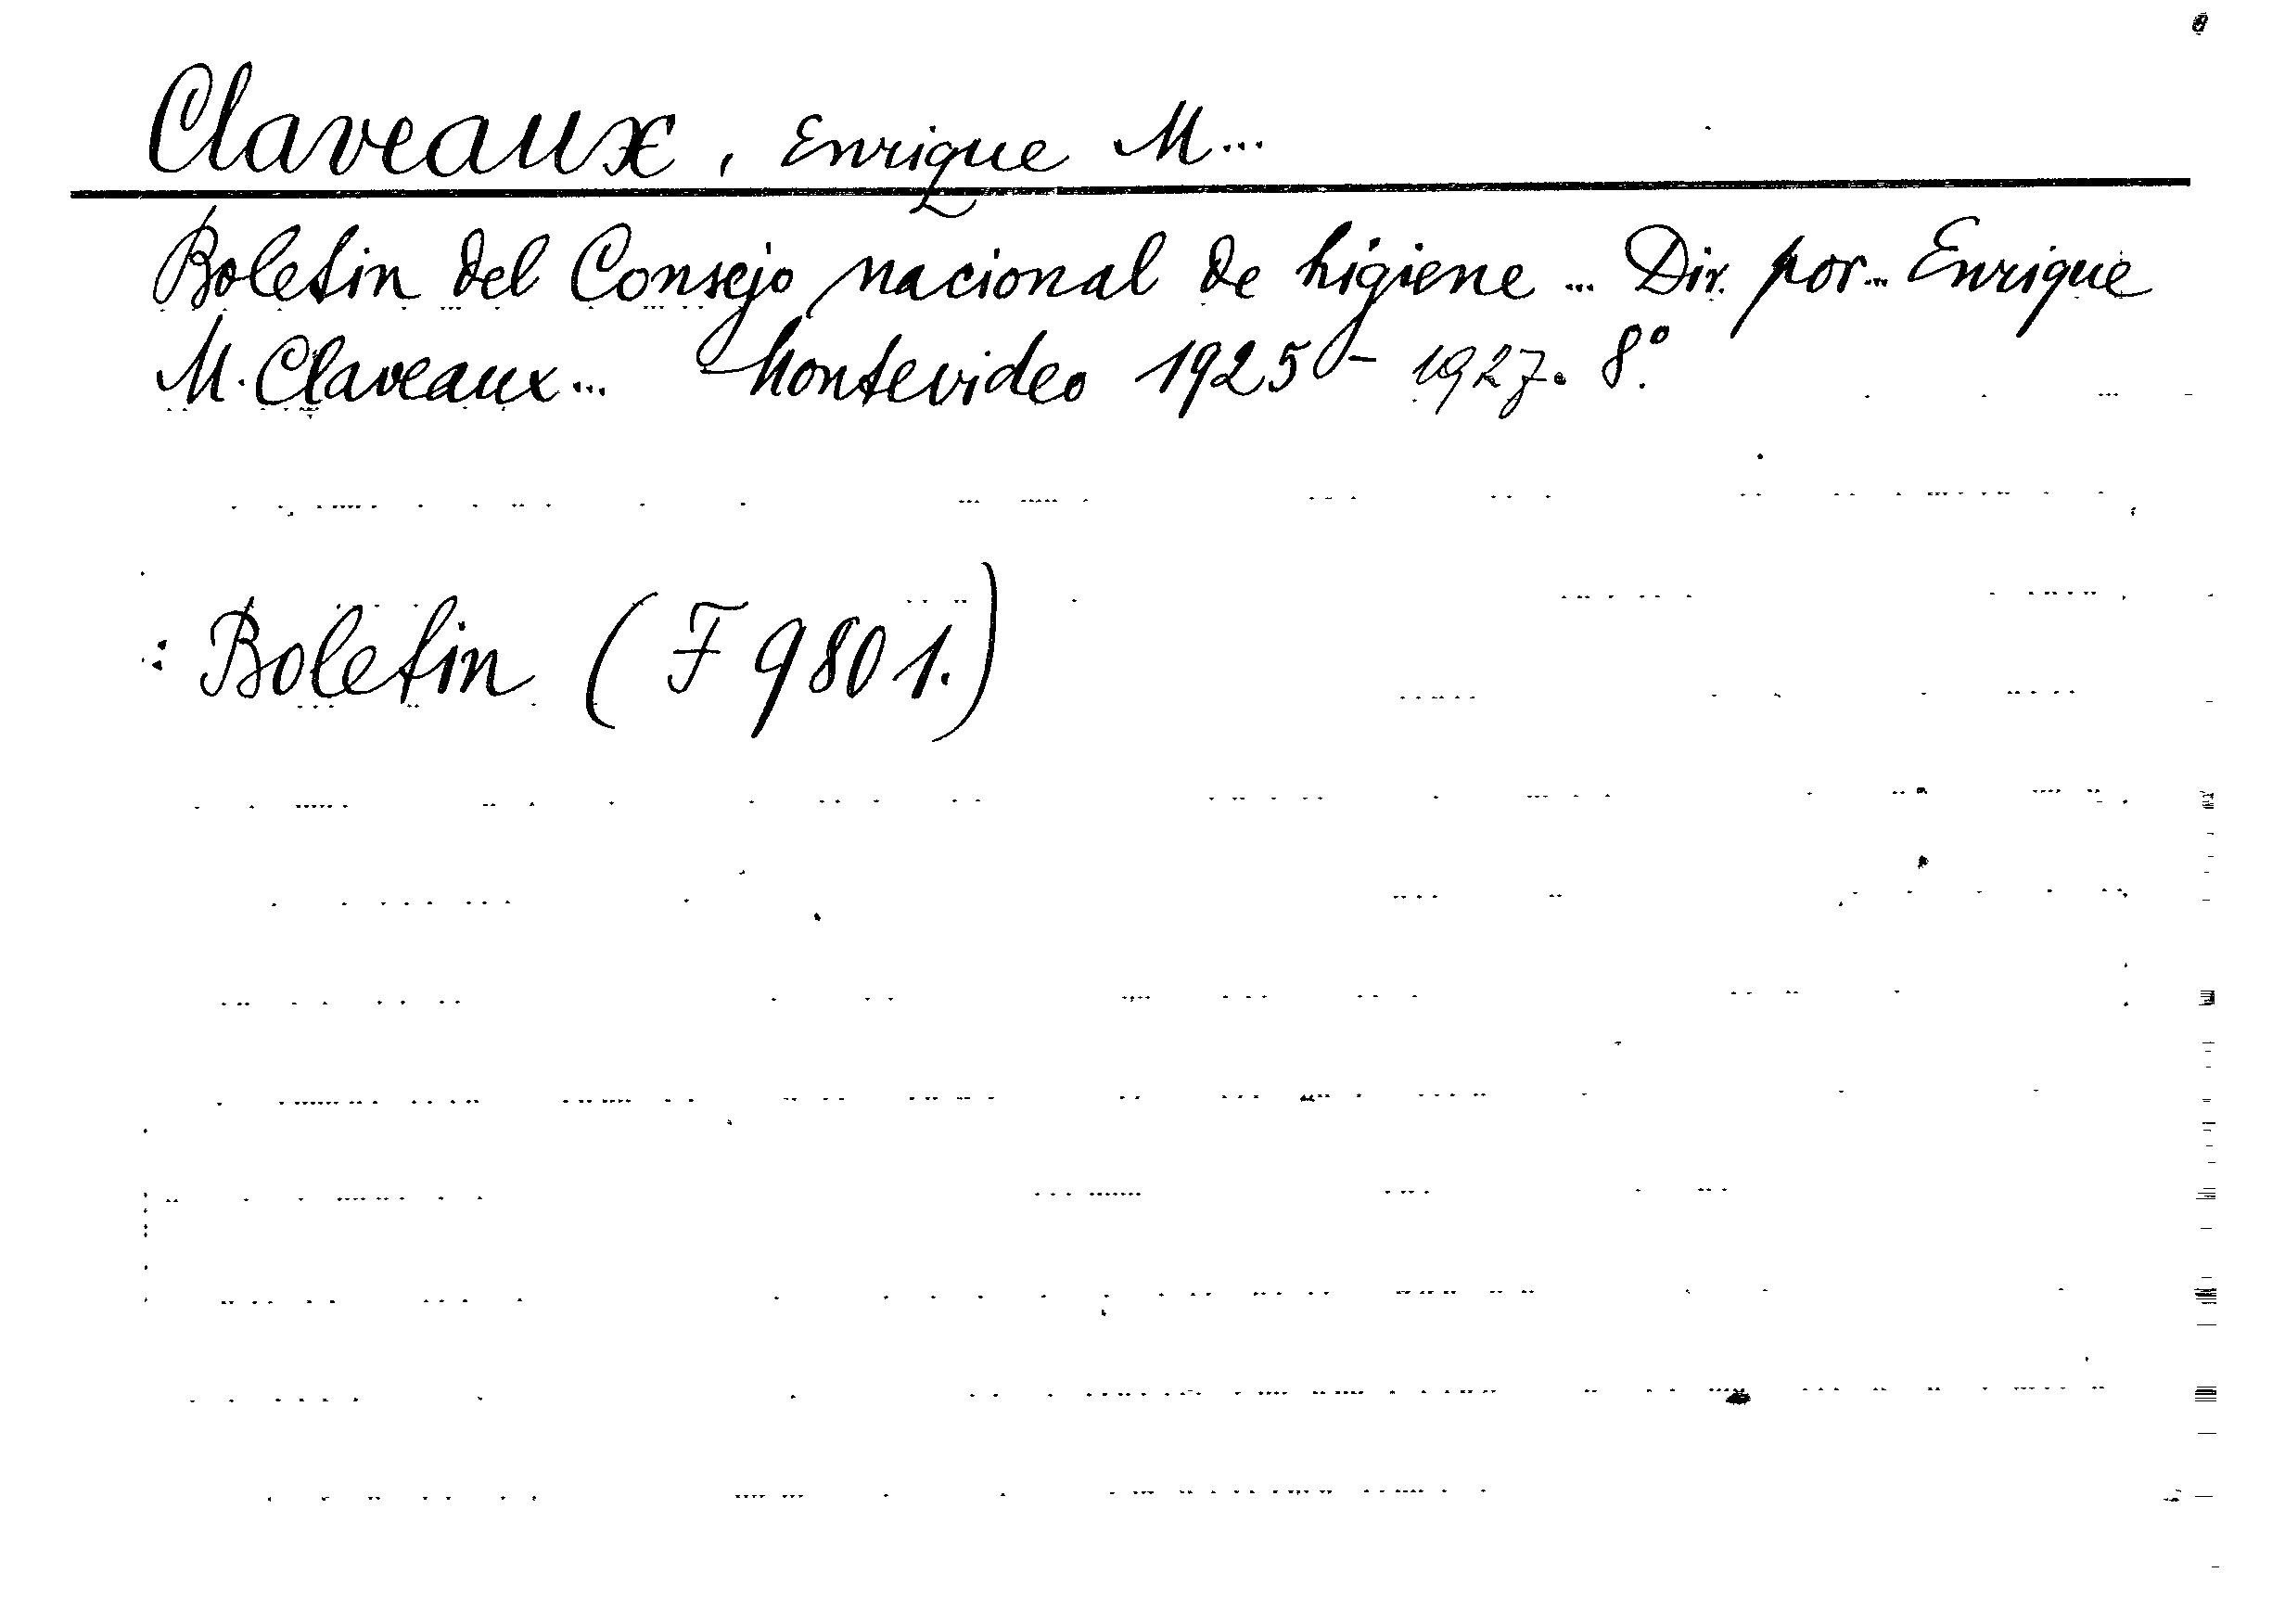 Claveaux, Enrique M...
Boletin del Consejo nacional de higiene ... Dir. por... Enrique
M. Claveaux... Montevideo 1925 - 1927. 8º.
: Boletin (F 9801.)